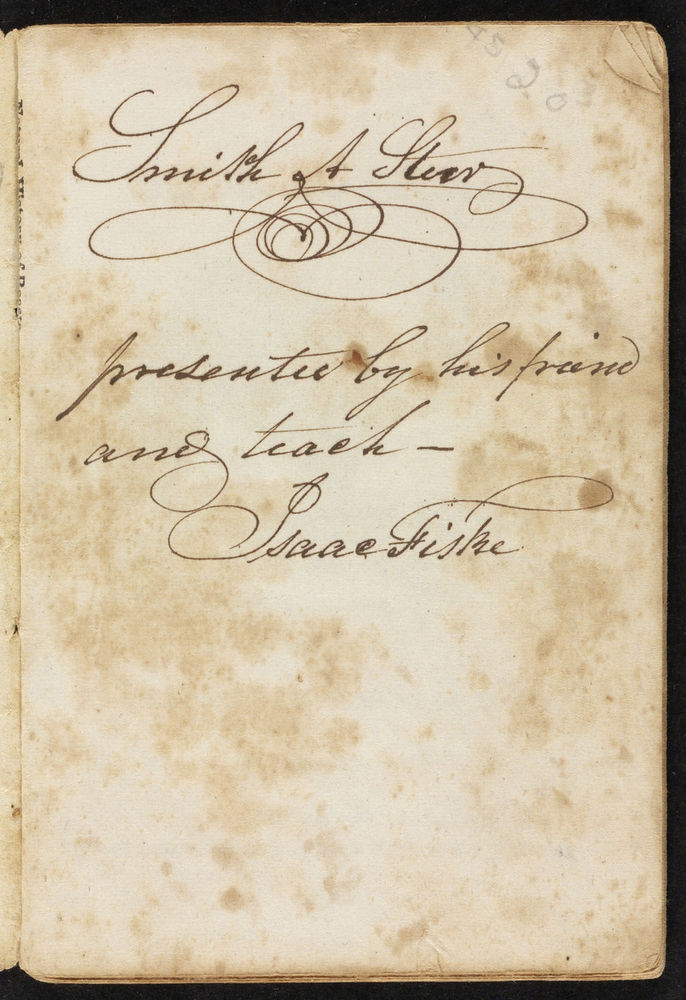 Smith A Steer
presented by his friend
and teach—
Isaac Fiske